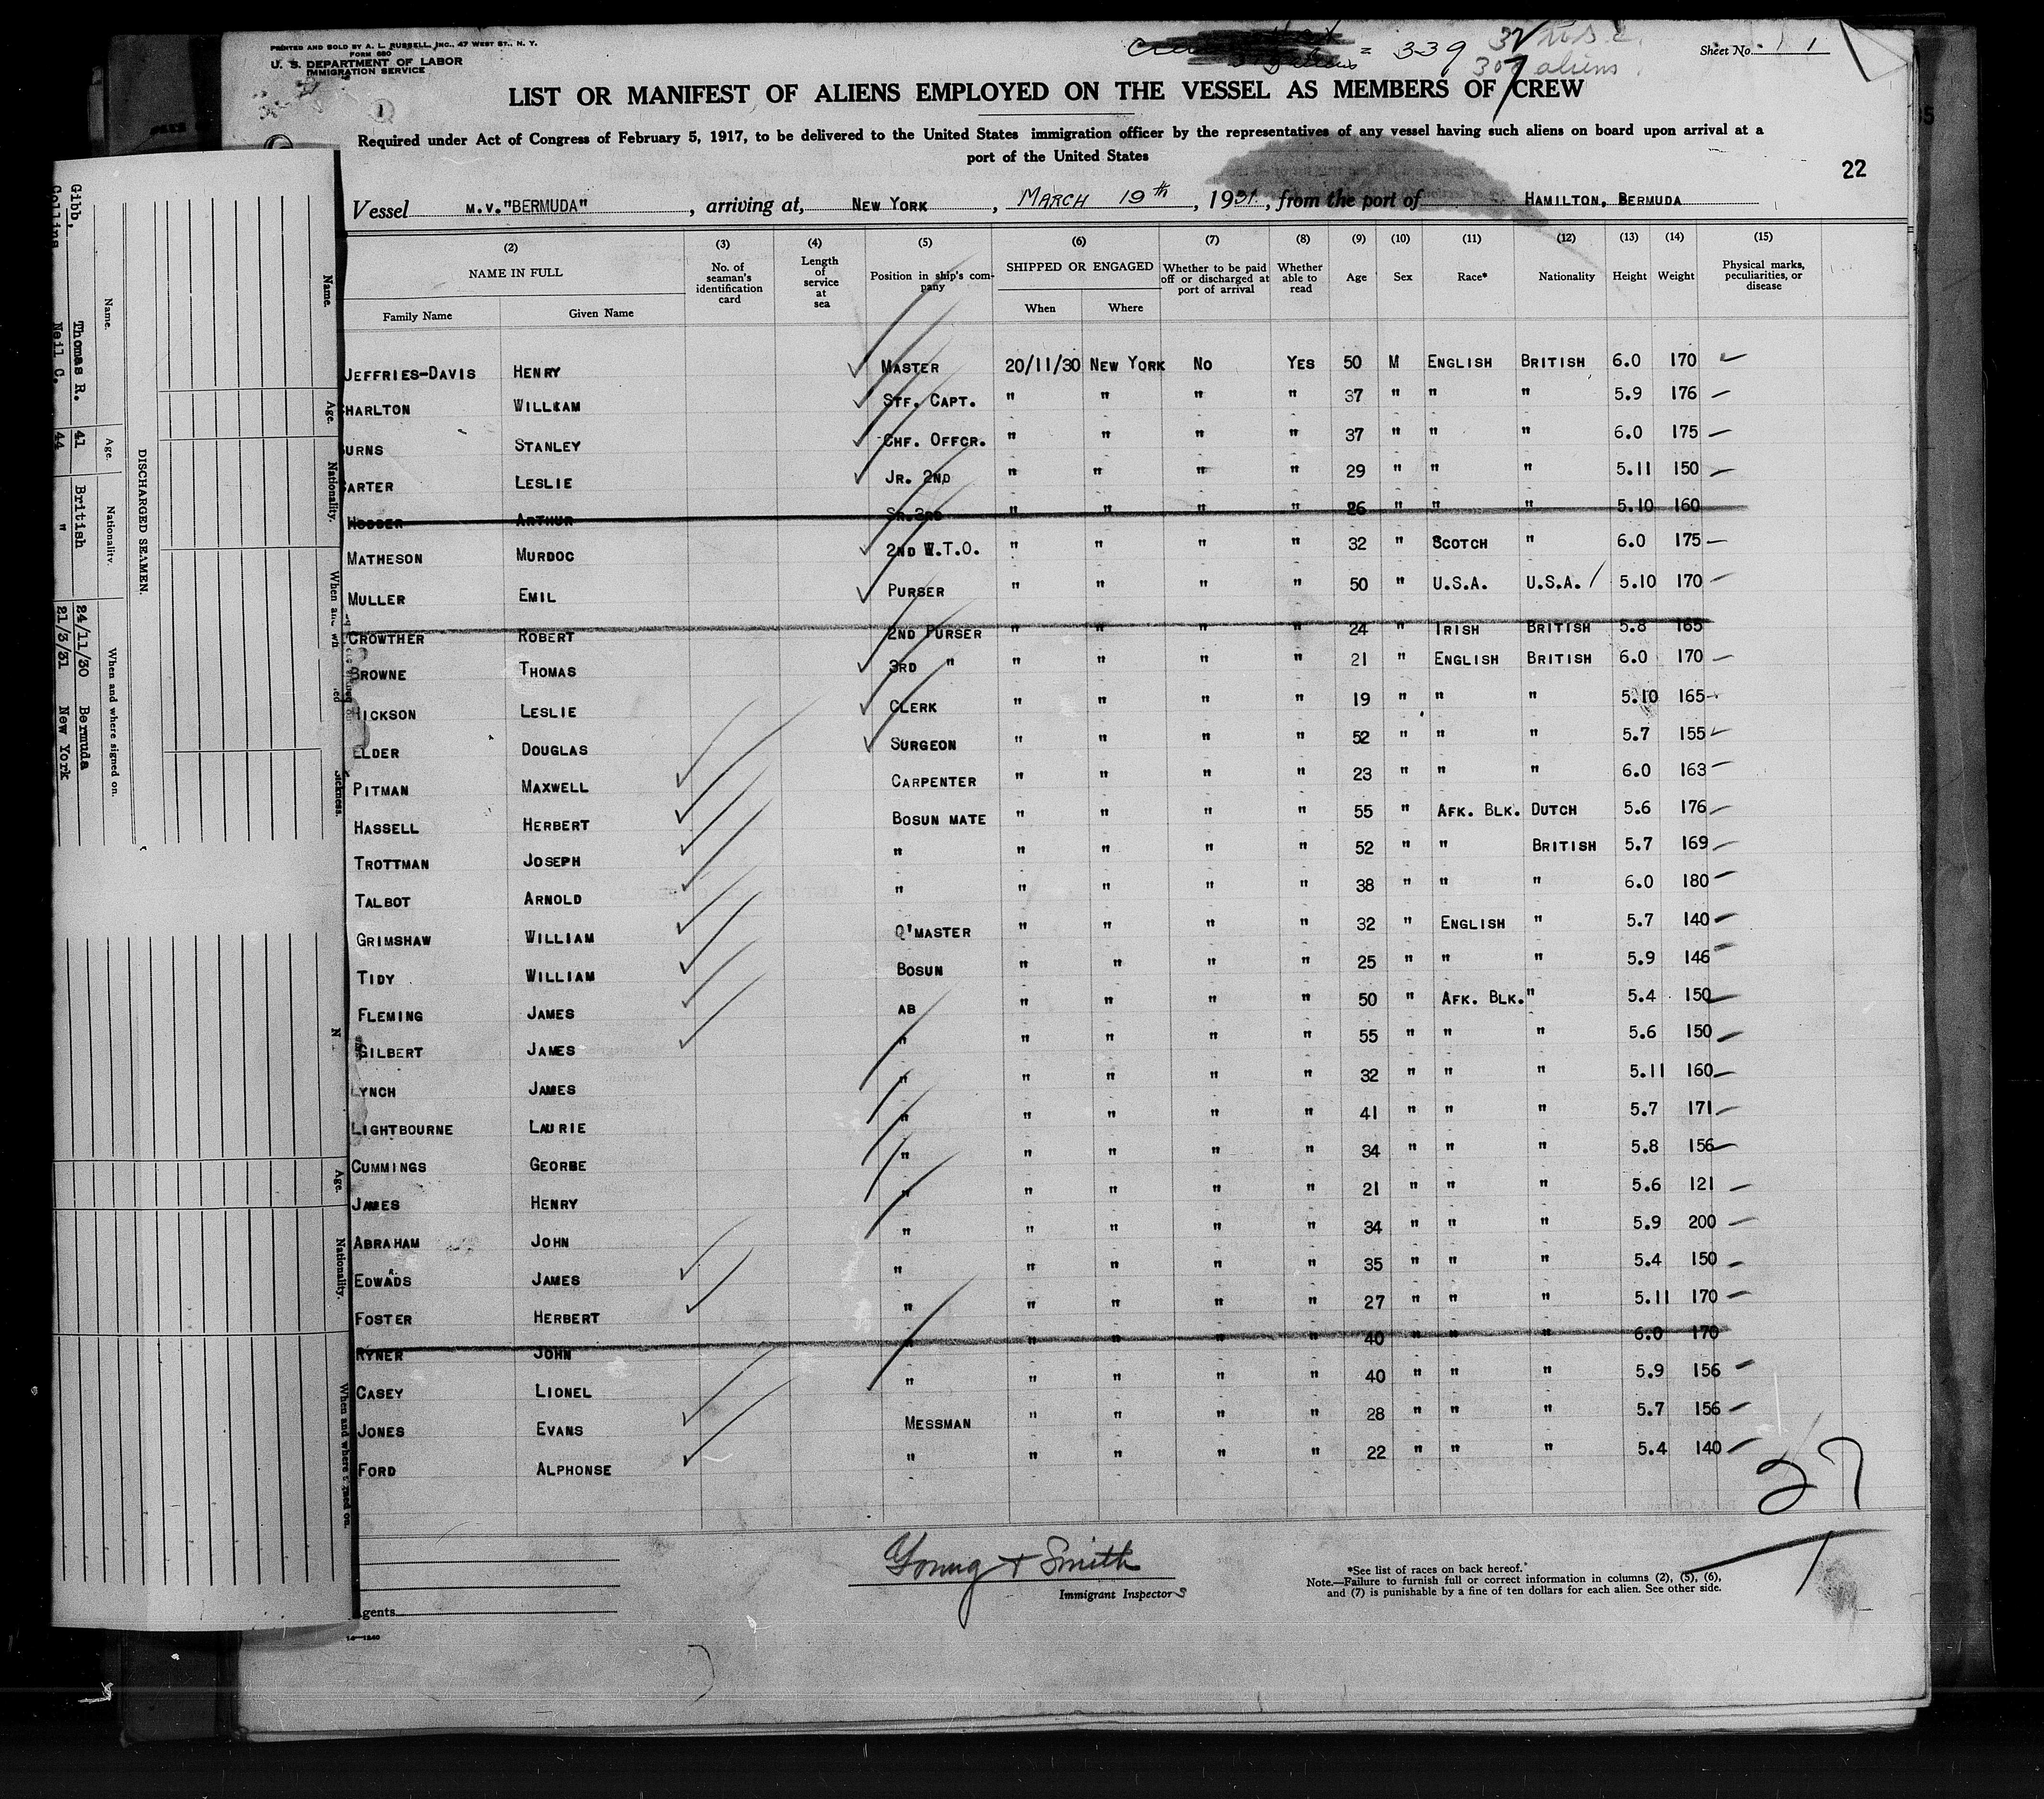 PRINTED AND SOLD BY A. L. RUSSELL, INC., 47 WEST ST., N. Y.
FORM 680
U. S. DEPARTMENT OF LABOR
IMMIGRATION SERVICE
= 339
aliens
Sheet No. 1
1
LIST OR MANIFEST OF ALIENS EMPLOYED ON THE VESSEL AS MEMBERS OF CREW
Required under Act of Congress of February 5, 1917, to be delivered to the United States immigration officer by the representatives of any vessel having such aliens on board upon arrival at a
port of the United States
22
Vessel M.V."BERMUDA", arriving at, NEW YORK, MARCH 19th, 1931, from the port of HAMILTON, BERMUDA
(2) (3) (4) (5) (6) (7) (8) (9) (10) (11) (12) (13) (14) (15)
NAME IN FULL No. of seaman's identification card Length of service at sea Position in ship's company SHIPPED OR ENGAGED Whether to be paid off or discharged at port of arrival Whether able to read Age Sex Race* Nationality Height Weight Physical marks, peculiarities, or disease
Family Name Given Name When Where
JEFFRIES-DAVIS HENRY MASTER 20/11/30 NEW YORK NO YES 50 M ENGLISH BRITISH 6.0 170
HARLTON WILLIAM STF. CAPT. " " " " 37 " " " 5.9 176
URNS STANLEY CHF. OFFCR. " " " " 37 " " " 6.0 175
ARTER LESLIE JR. 2ND " " " " 29 " " " 5.11 150
ARTHUR SR.3RD " " " " 26 " " " 5.10 160
MATHESON MURDOC 2ND W.T.O. " " " " 32 " SCOTCH " 6.0 175
MULLER EMIL PURSER " " " " 50 " U.S.A. U.S.A. 5.10 170
CROWTHER ROBERT 2ND PURSER " " " " 24 " IRISH BRITISH 5.8 165
BROWNE THOMAS 3RD " " " " " 21 " ENGLISH BRITISH 6.0 170
HICKSON LESLIE CLERK " " " " 19 " " " 5.10 165
ELDER DOUGLAS SURGEON " " " " 52 " " " 5.7 155
PITMAN MAXWELL CARPENTER " " " " 23 " " " 6.0 163
HASSELL HERBERT BOSUN MATE " " " " 55 " AFK. BLK. DUTCH 5.6 176
TROTTMAN JOSEPH " " " " " 52 " " BRITISH 5.7 169
TALBOT ARNOLD " " " " " 38 " " " 6.0 180
GRIMSHAW WILLIAM Q'MASTER " " " " 32 " ENGLISH " 5.7 140
TIDY WILLIAM BOSUN " " " " 25 " " " 5.9 146
FLEMING JAMES AB " " " " 50 " AFK. BLK. " 5.4 150
GILBERT JAMES " " " " " 55 " " " 5.6 150
LYNCH JAMES " " " " " 32 " " " 5.11 160
LIGHTBOURNE LAURIE " " " " " 41 " " " 5.7 171
CUMMINGS GEORBE " " " " " 34 " " " 5.8 156
JAMES HENRY " " " " " 21 " " " 5.6 121
ABRAHAM JOHN " " " " " 34 " " " 5.9 200
EDWARDS JAMES " " " " " 35 " " " 5.4 150
FOSTER HERBERT " " " " " 27 " " " 5.11 170
RYNER JOHN " " " " " 40 " " " 6.0 170
CASEY LIONEL " " " " " 40 " " " 5.9 156
JONES EVANS MESSMAN " " " " 28 " " " 5.7 156
FORD ALPHONSE " " " " " 22 " " " 5.4 140
27
1
Young + Smith
Immigrant Inspectors
*See list of races on back hereof.
Note.—Failure to furnish full or correct information in columns (2), (5), (6),
and (7) is punishable by a fine of ten dollars for each alien. See other side.
gents
14—1240
DISCHARGED SEAMEN.
Name. Age. Nationality. When and where signed on.
Gibb, Thomas R. 41 British 24/11/30 Bermuda
Collins Neil C. 44 " 21/3/31 New York
Name. Age. Nationality.
Sickness.
Age. Nationality. When and where